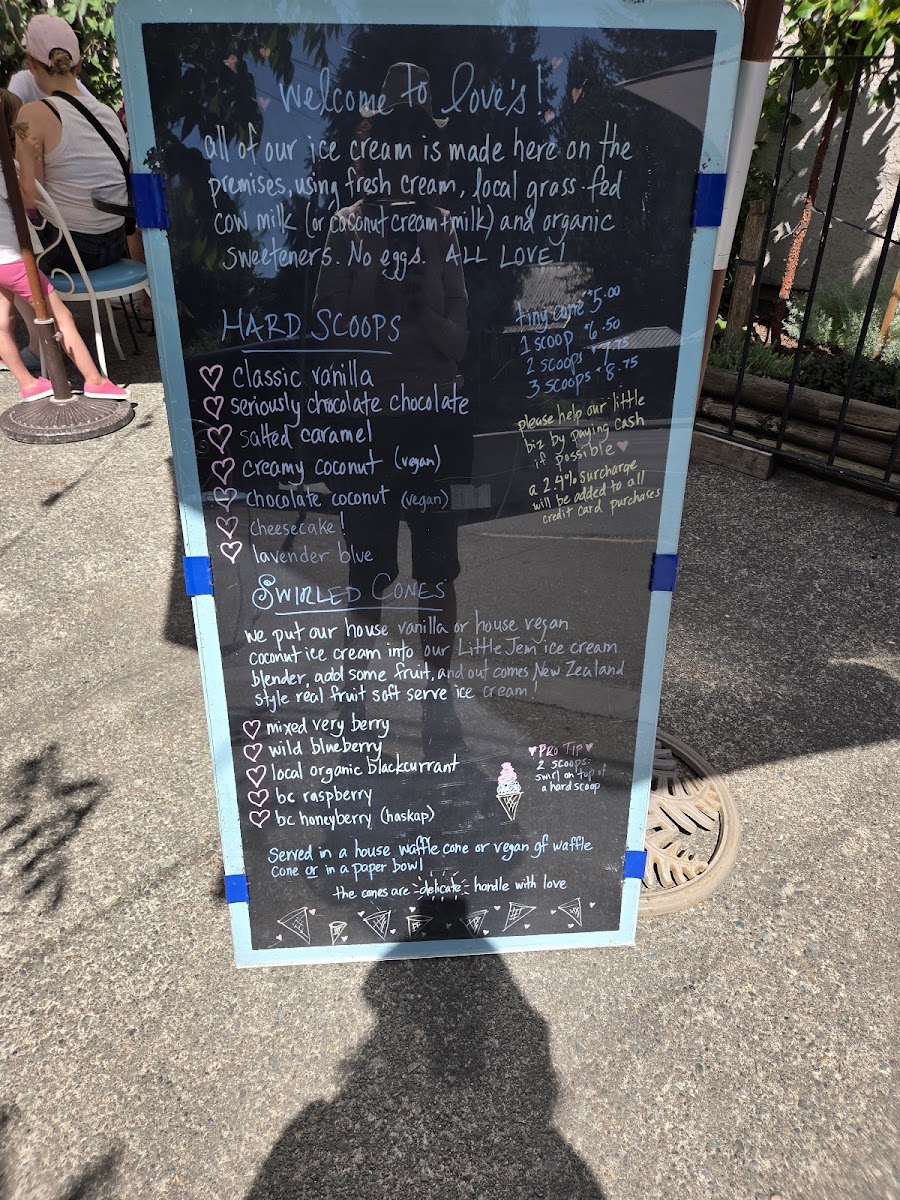 welcome to love's!
all of our ice cream is made here on the
premises, using fresh cream, local grass-fed
cow milk (or coconut cream + milk) and organic
sweeteners. No eggs. ALL LOVE!
HARD SCOOPS
classic vanilla
seriously chocolate chocolate
salted caramel
creamy coconut (vegan)
chocolate coconut (vegan)
cheesecake!
lavender blue
tiny cone $5.00
1 scoop $6.50
2 scoops $7.75
3 scoops $8.75
please help our little
biz by paying cash
if possible
a 2.4% surcharge
will be added to all
credit card purchases
SWIRLED CONES
we put our house vanilla or house vegan
coconut ice cream into our Little Jem ice cream
blender, add some fruit, and out comes New Zealand
style real fruit soft serve ice cream!
mixed very berry
wild blueberry
local organic blackcurrant
bc raspberry
bc honeyberry (haskap)
PRO TIP
2 scoops:
swirl on top of
a hard scoop
Served in a house waffle cone or vegan gf waffle
cone or in a paper bowl
the cones are delicate handle with love